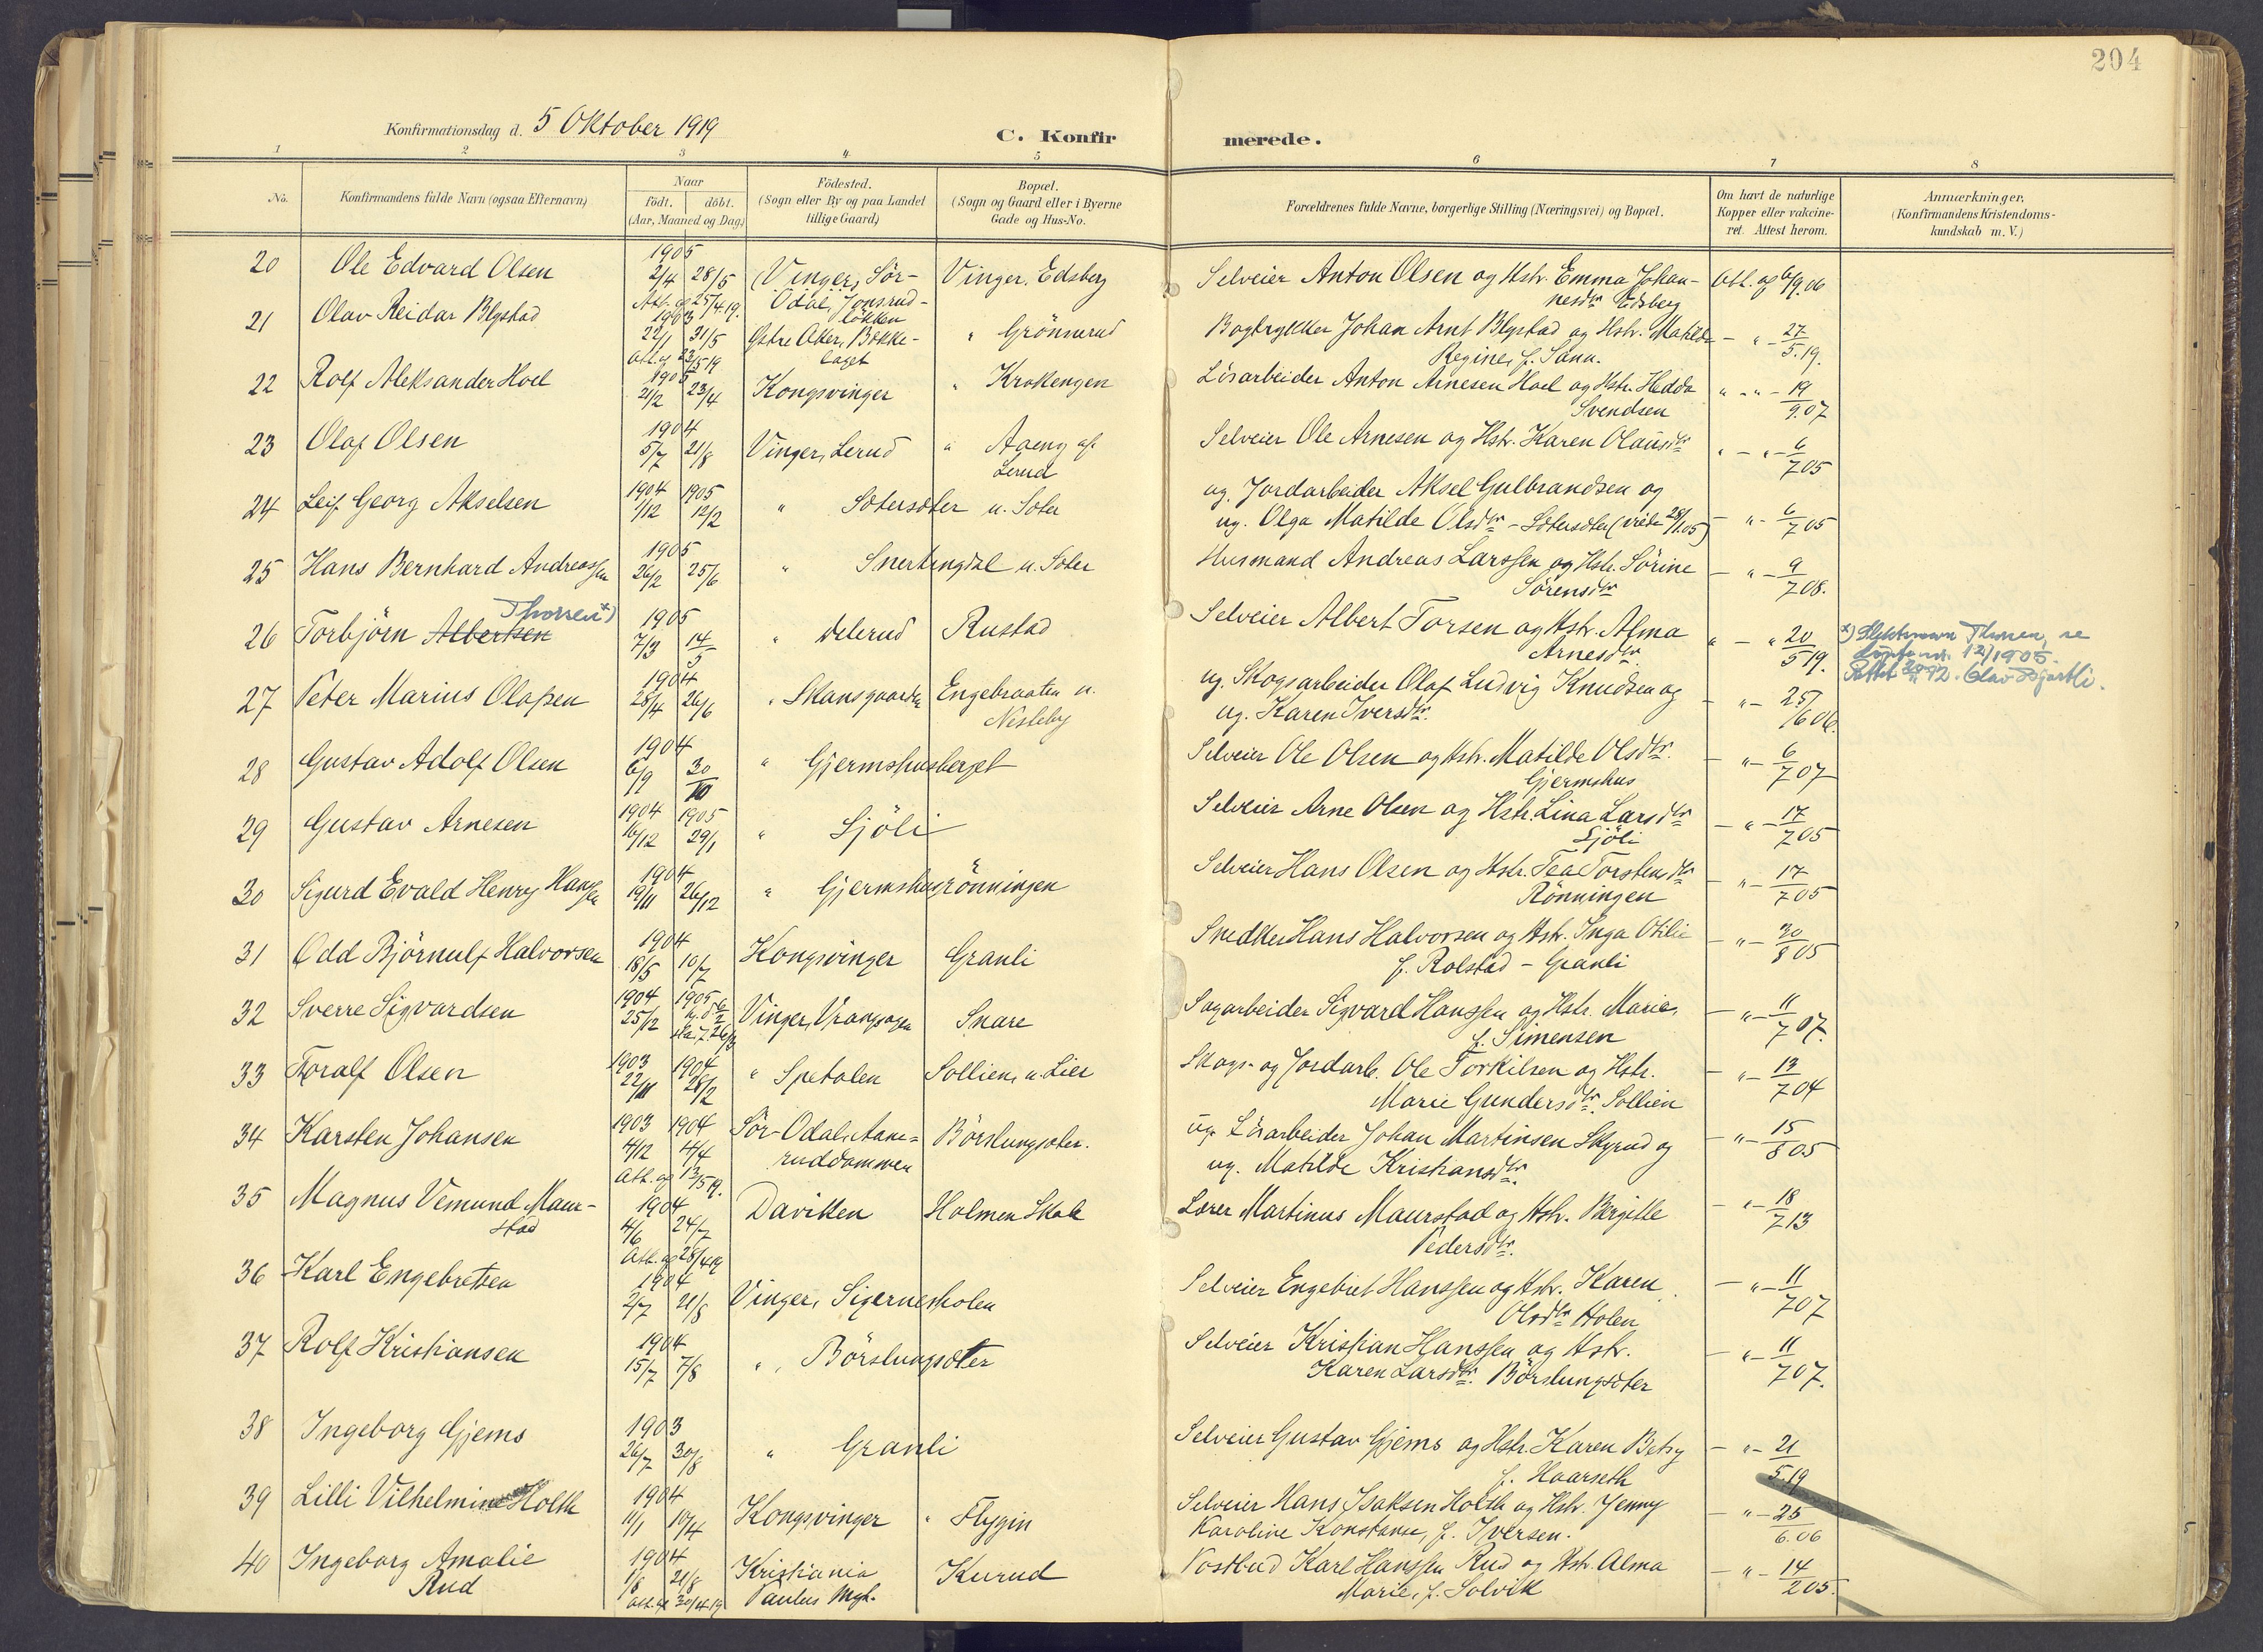 204
Konfirmationsdag d. 5 Oktober 1919
C. Konfirmerede.
1 2 3 4 5 6 7 8
No.
Konfirmandens fulde Navn (ogsaa Efternavn)
Naar
födt. döbt.
(Aar, Maaned og Dag)
Födested.
(Sogn eller By og paa Landet
tillige Gaard)
Bopæl.
(Sogn og Gaard eller i Byerne
Gade og Hus-No.
Forældrenes fulde Navne, borgerlige Stilling (Næringsvei) og Bopæl.
Om havt de naturlige
Kopper eller vakcine-
ret. Attest herom.
Anmærkninger.
(Konfirmandens Kristendoms-
kundskab m. V.)
20 Ole Edvard Olsen 1905 2/4 28/5 Vinger, Sör-Odal, Jonsrud-lökken Vinger, Edsberg Selveier Anton Olsen og Hstr. Emma Johan-
Att. og 25/4.19. nesdtr Edsberg Att. og 6/9.06
21 Olav Reidar Blystad 1903 22/1 31/5 Östre Aker, Bække-laget " Grönnerud Bogtrykker Johan Arnt Blystad og Hstr. Matilde - " - 27/5.19.
Att. og 23/5 19 Regine, f. Sann.
22 Rolf Aleksander Hoel 1905 21/2 23/4 Kongsvinger " Krokengen Lösarbeider Anton Arnesen Hoel og Hstr. Hedda " - " - 19/9.07
Svendsen
23 Olaf Olsen 1904 5/7 21/8 Vinger, Lerud " Aaeng af Selveier Ole Arnesen og Hstr. Karen Olausdtr " - " - 6/7 05
Lerud
24 Leif Georg Akselsen 1904 1/12 1905 12/2 " Sætersæter u. Soter ug. Jordarbeider Aksel Gulbrandsen og
ug. Olga Matilde Olsdtr - Sætersæter (viede 28/1.05) - " - 6/7 05
25 Hans Bernhard Andreassen 1905 26/2 25/6 " Snertingdal u. Soter Husmand Andreas Larssen og Hstr. Sörine - " - 9/7 08.
Sörensdtr
26 Torbjörn Albertsen Thorsen x) 1905 7/3 14/5 " Rustad Selveier Albert Torsen og Hstr. Alma " - " 20/5 19.
Arnesdtr
x) Thorsen, se
12/1905.
27 Peter Marius Olafsen 1904 28/4 26/6 " Skansgaarden Engebraaten u. ug. Skogsarbeider Olaf Ludvig Knudsen og
Nesteby ug. Karen Iversdtr. - " - 25/6 06.
28 Gustav Adolf Olsen 1904 6/9 30/10 " Gjermshusberget Selveier Ole Olsen og Hstr. Matilde Olsdtr. - " - 6/7 07
Gjermshus
29 Gustav Arnesen 1904 16/12 1905 29/1 " Sjöli Selveier Arne Olsen og Hstr. Lina Larsdtr - " - 17/7 05
Sjöli
30 Sigurd Evald Henry Hanssen 1904 19/11 26/12 " Gjermshusrönningen Selveier Hans Olsen og Hstr. Tea Torstensdtr - " - 17/7 05
Rönningen
31 Odd Björnulf Halvorsen 1904 18/5 10/7 Kongsvinger Granli Snedker Hans Halvorsen og Hstr. Inga Otilie - " - 30/8 05
f. Rolstad - Granli
32 Sverre Sigvardsen 1904 25/12 1905 Vinger, Vrangsagen Snare Sagarbeider Sigvard Hanssen og Hstr. Marie, - " - 11/7 07.
f. Simensen
33 Toralf Olsen 1903 22/11 1904 28/2 " Spetalen Sollien, u. Lier Skogs- og Jordarb. Ole Torkilsen og Hstr. - " - 13/7 04
Marie Gundersdtr. Sollien
34 Karsten Johansen 1903 4/12 1904 4/4 Sör-Odal, Aane-ruddammen Börslungsæter. ug. Lösarbeider Johan Martinsen Skyrud og - " - 15/8 05
Att. og 13/5 19. ug. Matilde Kristiansdtr.
35 Magnus Vemund Maur-stad 1904 4/6 24/7 Daviken Holmen Skole Lærer Martinus Maurstad og Hstr. Bergitte - " - 18/7 13
Att. og 28/4 19 Pedersdtr.
36 Karl Engebretsen 1904 2/7 21/8 Vinger, Sigernesholen Selveier Engebret Hanssen og Hstr. Karen - " - 11/7 07
Olsdtr Holen
37 Rolf Kristiansen 1904 15/7 7/8 " Börslungsæter Selveier Kristian Hanssen og Hstr. - " - 11/7 07.
Karen Larsdtr. Börslungsæter
38 Ingeborg Gjems 1903 26/7 30/8 " Granli Selveier Gustav Gjems og Hstr. Karen Betsy - " - 21/5.19
f. Haarseth
39 Lilli Vilhelmine Holth 1904 11/1 10/4 Kongsvinger " Flygin Selveier Hans Isaksen Holth og Hstr. Jenny - " - 25/6.06
Karoline Konstanse, f. Iversen.
40 Ingeborg Amalie 1904 1/8 21/8 Kristiania Kurud Postbud Karl Hanssen Rud og Hstr. Alma - " - 14/2 05.
Rud Att. og 30/4.19 Paulus Mgh. Marie, f. Solvik